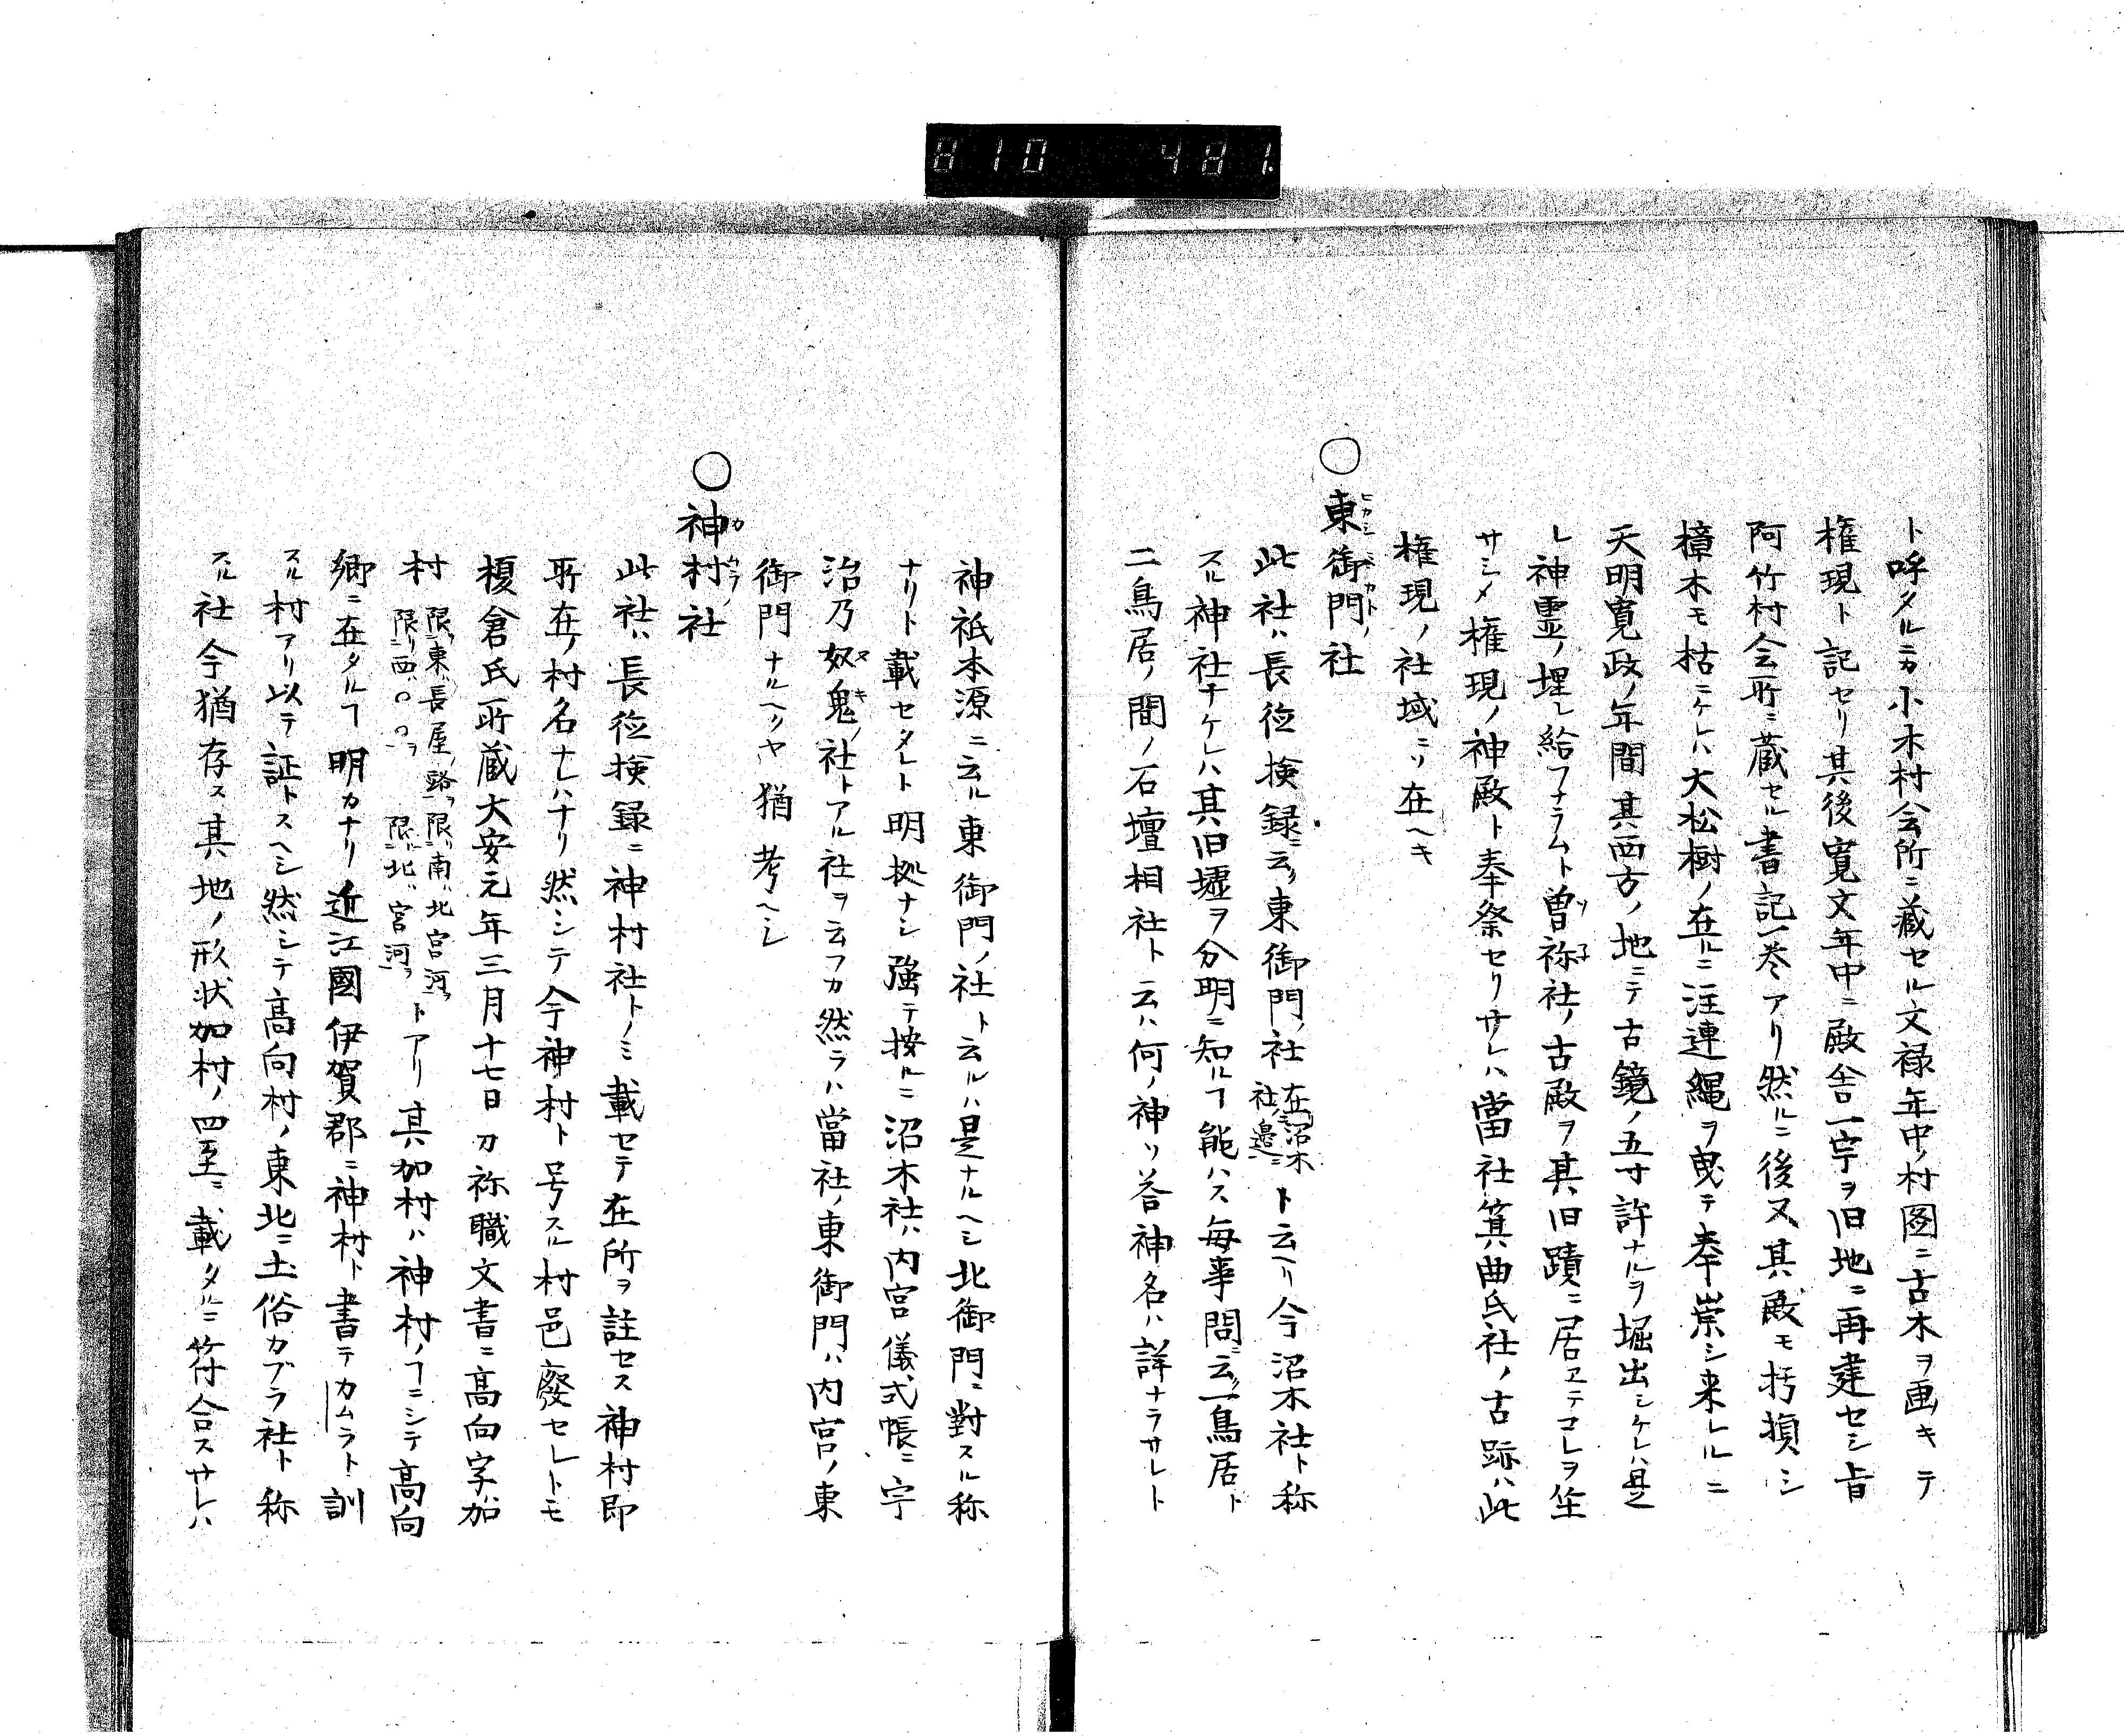 810 481.
ト呼タルニカ小木村会所ニ蔵セル文禄年中ノ村図ニ古木ヲ画キテ
権現ト記セリ其後寛文年中ニ殿舎一宇ヲ旧地ニ再建セシ旨
阿竹村会所ニ蔵セル書記一巻アリ然ルニ後又其殿モ朽損シ
樟木モ枯ニケレハ大松樹ノ在ルニ注連縄ヲ曳テ奉崇シ来レルニ
天明寛政ノ年間其西方ノ地ニテ古鏡ノ五寸許ナルヲ堀出シケレハ是
レ神霊ノ埋レ給フナラムト曽祢社ノ古殿ヲ其旧蹟ニ居ヱテコレヲ坐
サシメ権現ノ神殿ト奉祭セリサレハ當社箕曲氏社ノ古跡ハ此
権現ノ社域ニソ在ヘキ
○東御門ノ社
此社ハ長徳検録ニ云ク東御門ノ社在沼木社ノ邊ニト云ヘリ今沼木社ト称
スル神社チケレハ其旧墟ヲ分明ニ知ルヿ能ハス毎事問ニ云ク一鳥居ト
二鳥居ノ間ノ石壇相社ト云ハ何ノ神ソ答神名ハ詳ナラサレト
神祇本源ニ云ル東御門ノ社ト云ルハ是ナルヘシ北御門ニ對スル称
ナリト載セタレト明拠ナシ強テ按ルニ沼木社ハ内宮儀式帳ニ宇
治乃奴鬼ノ社トアル社ヲ云フカ然ラハ當社ノ東御門ハ内宮ノ東
御門ナルヘリヤ猶考ヘシ
○神村社
此社ハ長徳検録ニ神村社トノミ載セテ在所ヲ註セス神村即
所在ノ村名ナレハナリ然シテ今神村ト号スル村邑廢セレトモ
榎倉氏所蔵大安元年三月十七日刀祢職文書ニ高向字加
村限ヲ東ハ長屋ノ路ヲ限リ南ハ北宮河ヲ限リ西ハ〇〇ヲ限ニ北ハ宮河ヲトアリ其加村ハ神村ノヿニシテ高向
郷ニ在タルヿ明カナリ近江國伊賀郡ニ神村ト書テカムラト訓
スル村アリ以テ証トスヘシ然シテ高向村ノ東北ニ土俗カブラ社ト称
スル社今猶存ス其地ノ形状加村ノ四至ニ載タルニ符合スサレハ